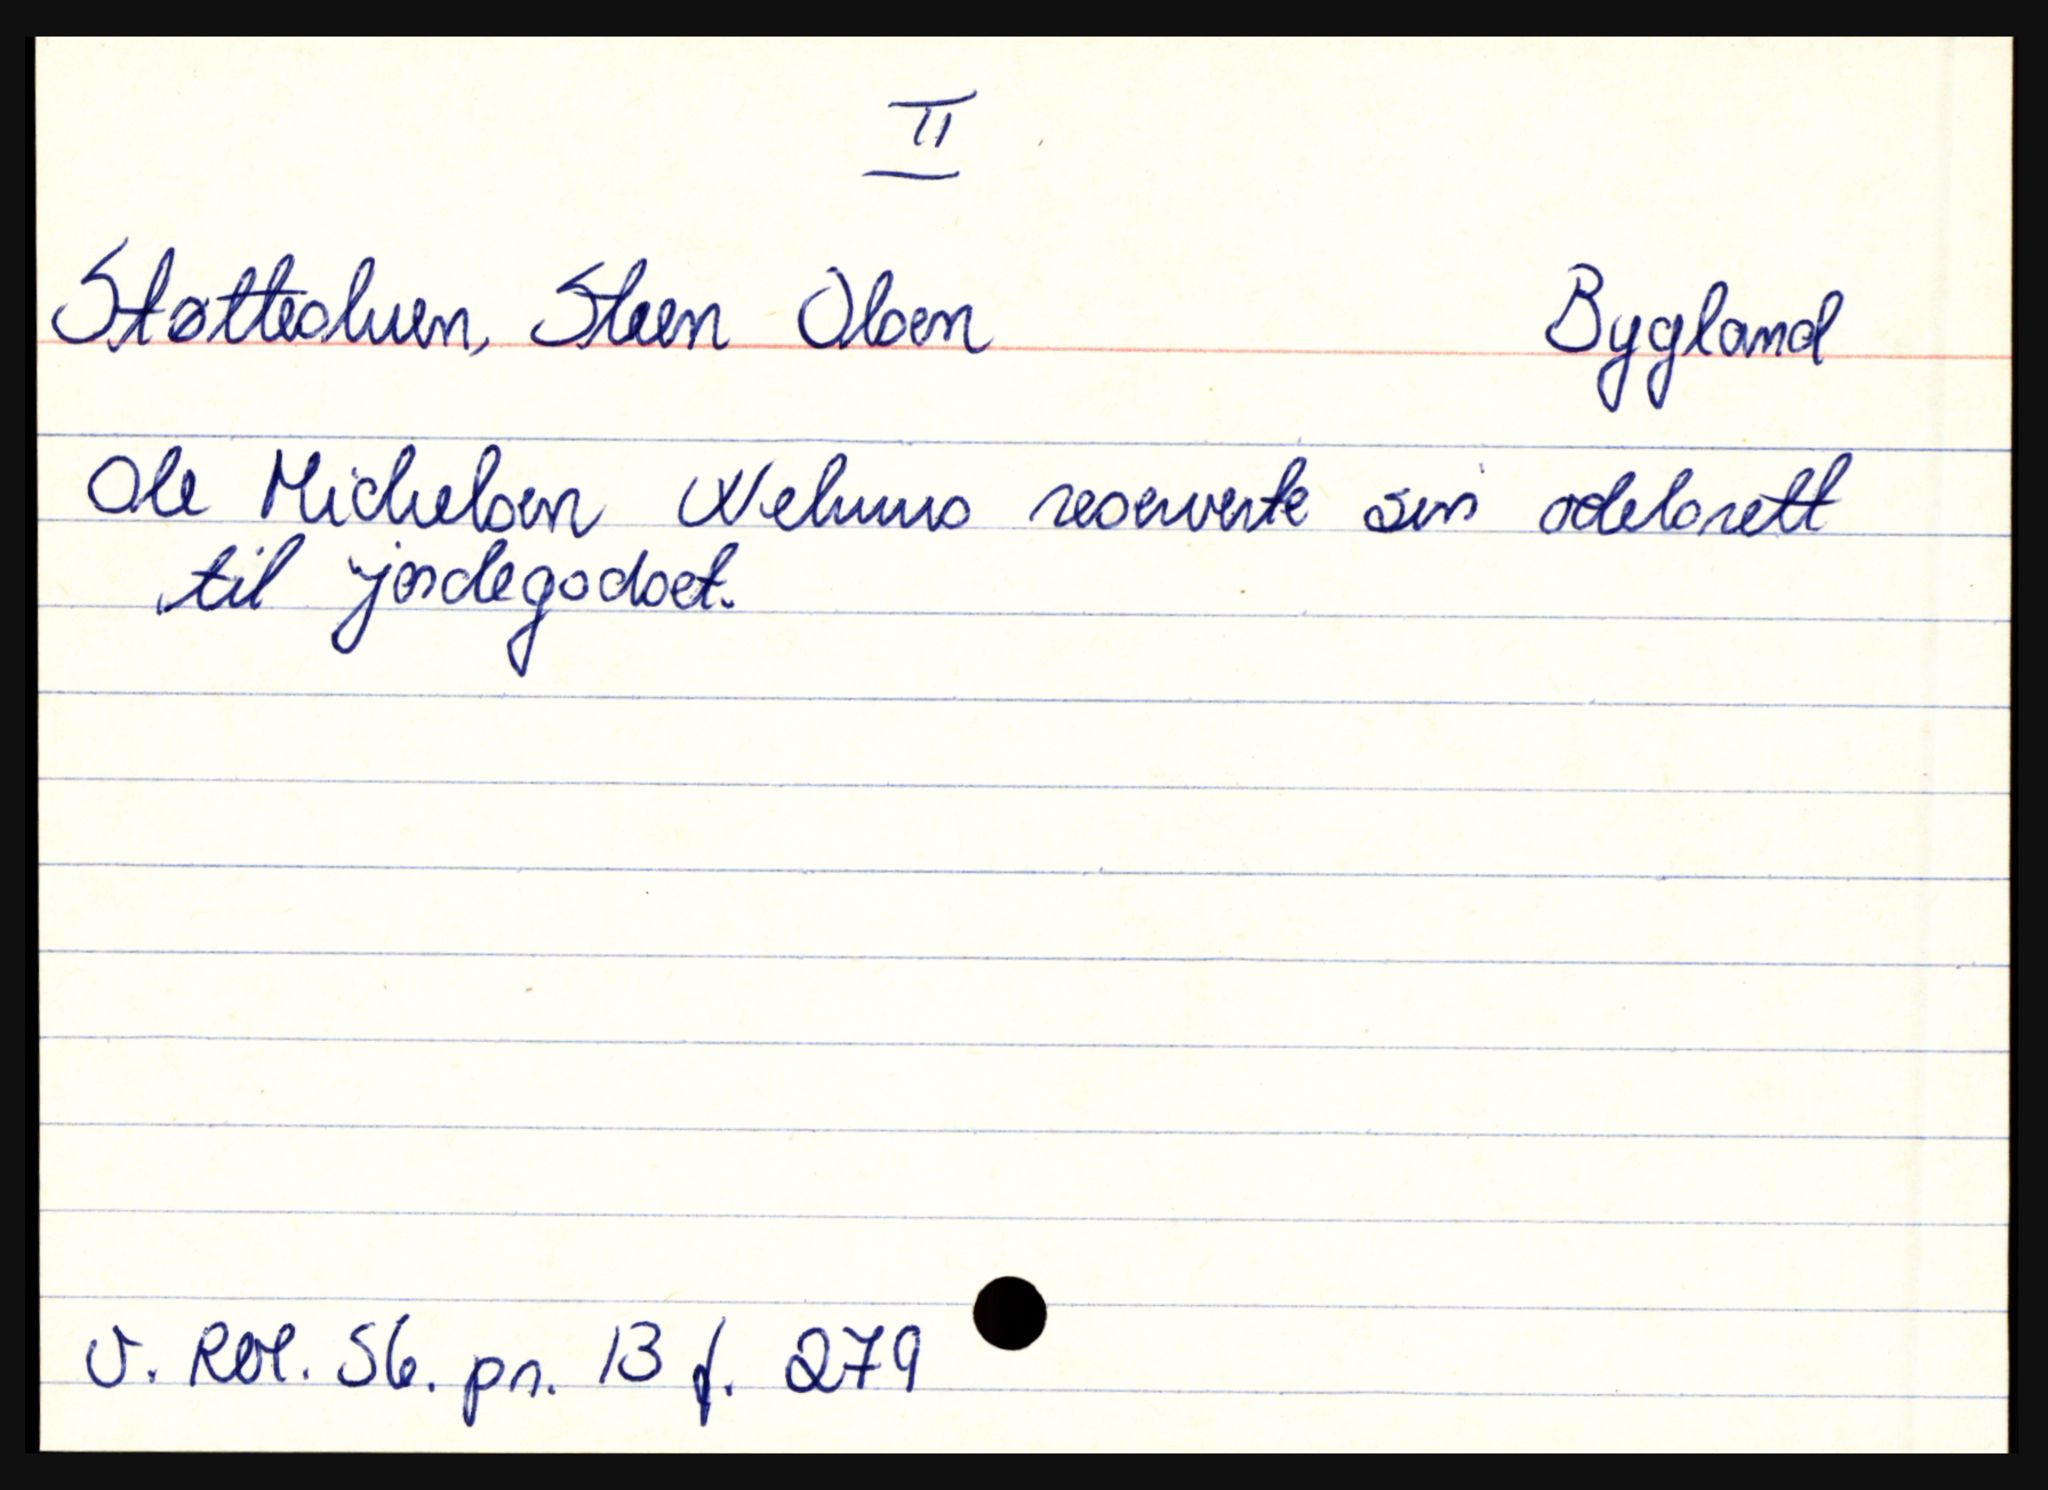 II
Støtteduen, Steen Olsen Bygland
Ole Michelsen reserverte sin odelsrett
til jordegodset.
V. Rår. Sb. pr. 13 f. 279